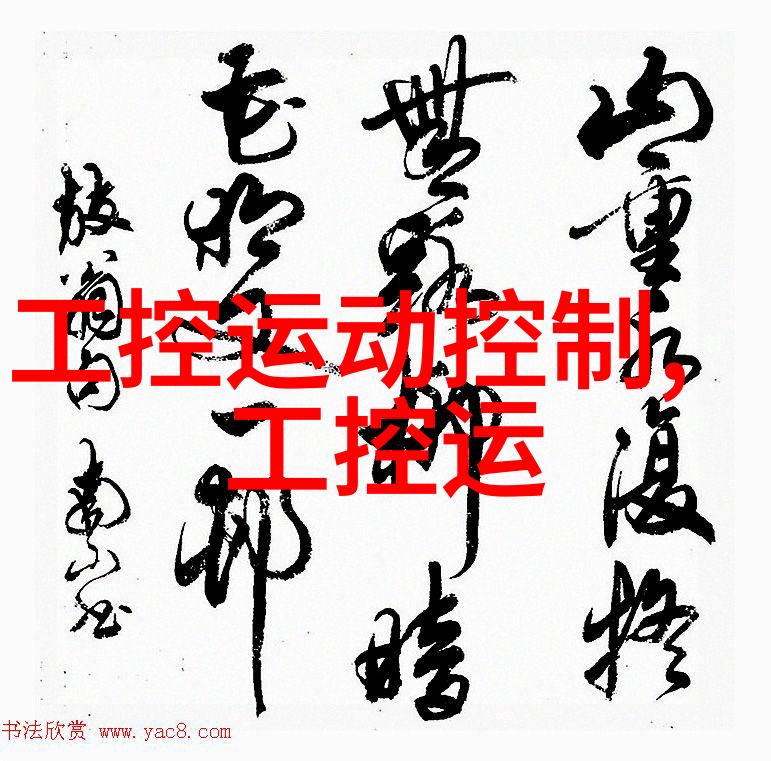 山重水復疑
無路柳暗
花明又一邨
放翁句
工控运动控制,
工控运
书法欣赏 www.yac8.com